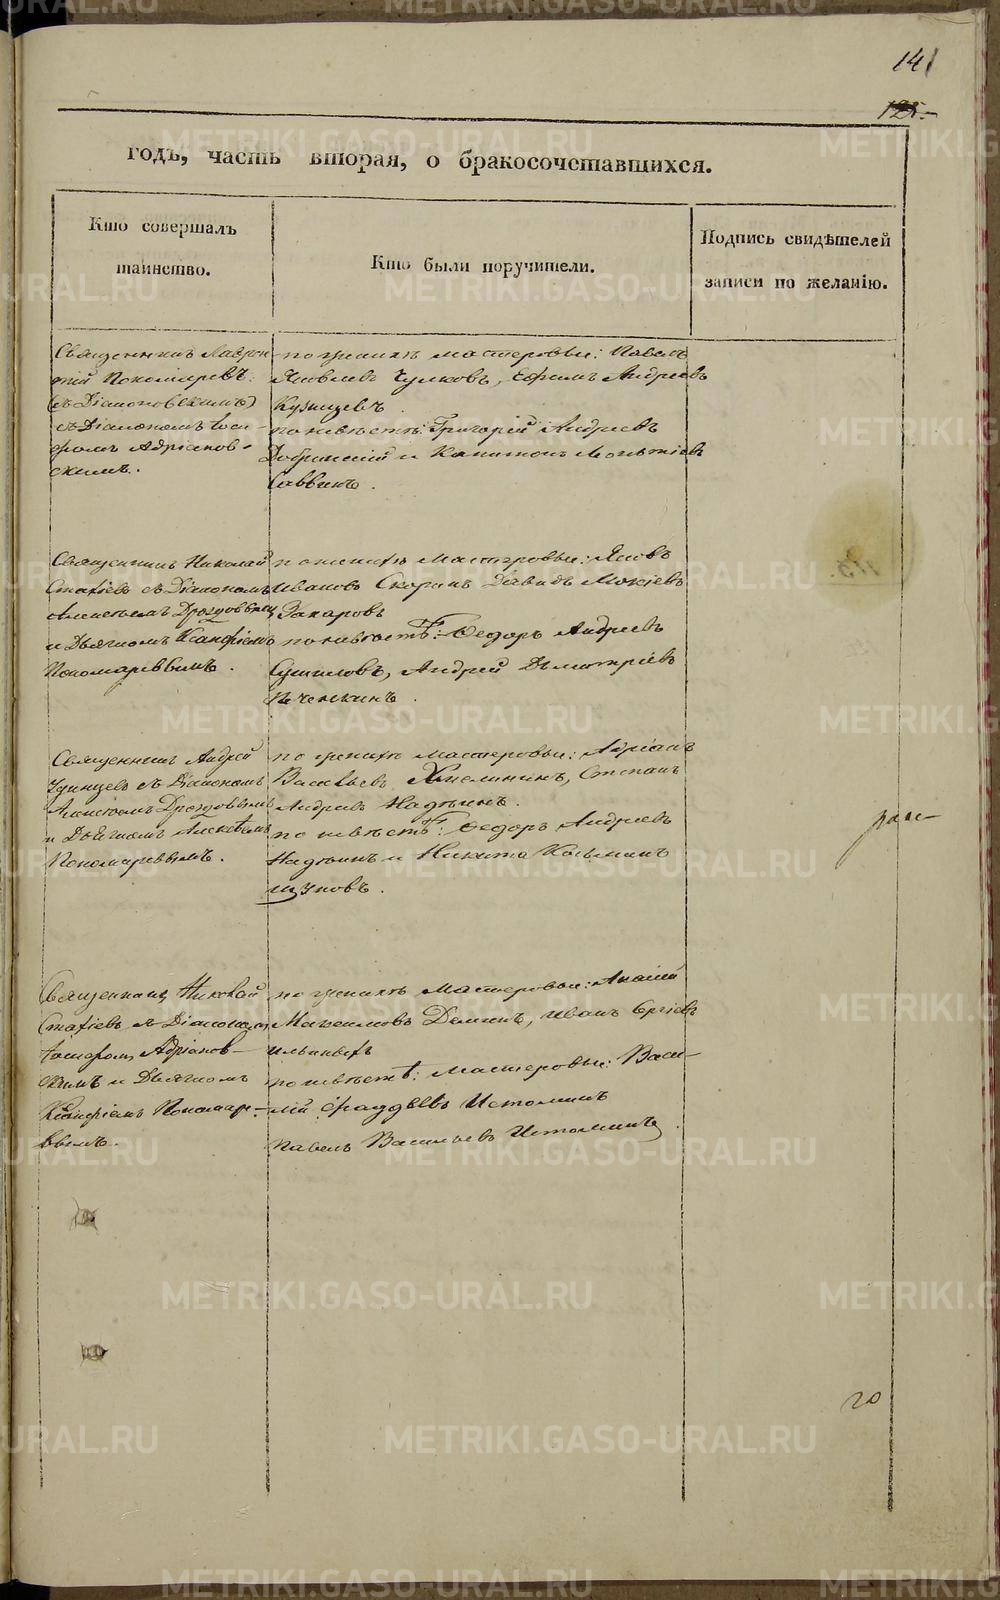 141
125.
годъ, часть вторая, о бракосочетавшихся.
Кто совершалъ
таинство.
Кто были поручители.
Подпись свидѣтелей
записи по желанію.
Священникъ Лаврен-
тій Пономаревъ
съ Діакономъ Іоси-
фомъ Адріанов-
скимъ.
по женихѣ мастеровые: Павелъ
Яковлевъ Чулковъ, Ефимъ Андреевъ
Кузнецевъ
по невѣстѣ: Григорій Андреевъ
Добрынскій и Капитонъ
Саввинъ.
Священникъ Николай
Стахіевъ съ Діакономъ
Алексѣемъ Дроздовымъ
и Дьячкомъ Ксанфіемъ
Пономаревымъ.
по женихѣ мастеровые: Яковъ
Ивановъ Скоринъ Давидъ Мокіевъ
Захаровъ
по невѣстѣ: Ѳедоръ Андреевъ
Сушиловъ, Андрей Дмитріевъ
Печенкинъ.
Священникъ Андрей
Удинцевъ съ Діакономъ
Алексѣемъ Дроздовымъ
и Дьячкомъ Алексѣемъ
Пономаревымъ.
по женихѣ мастеровые: Адріанъ
Васильевъ Хмелининъ, Степанъ
Андреевъ Надѣинъ.
по невѣстѣ: Ѳедоръ Андреевъ
Надѣинъ и Никита Кольман
щуковъ.
Священникъ Николай
Стахіевъ съ Діакономъ
Іосифомъ Адріанов-
скимъ и Дьячкомъ
Ксанфіемъ Пономаре-
вымъ.
по женихѣ Мастеровые: Ананій
Максимовъ Деминъ, Иванъ Сергіевъ
Ильиныхъ
по невѣстѣ: мастеровые: Васи-
лій Фаддѣевъ Истоминъ
Павелъ Васильевъ Истоминъ.
20
METRIKI.GASO-URAL.RU